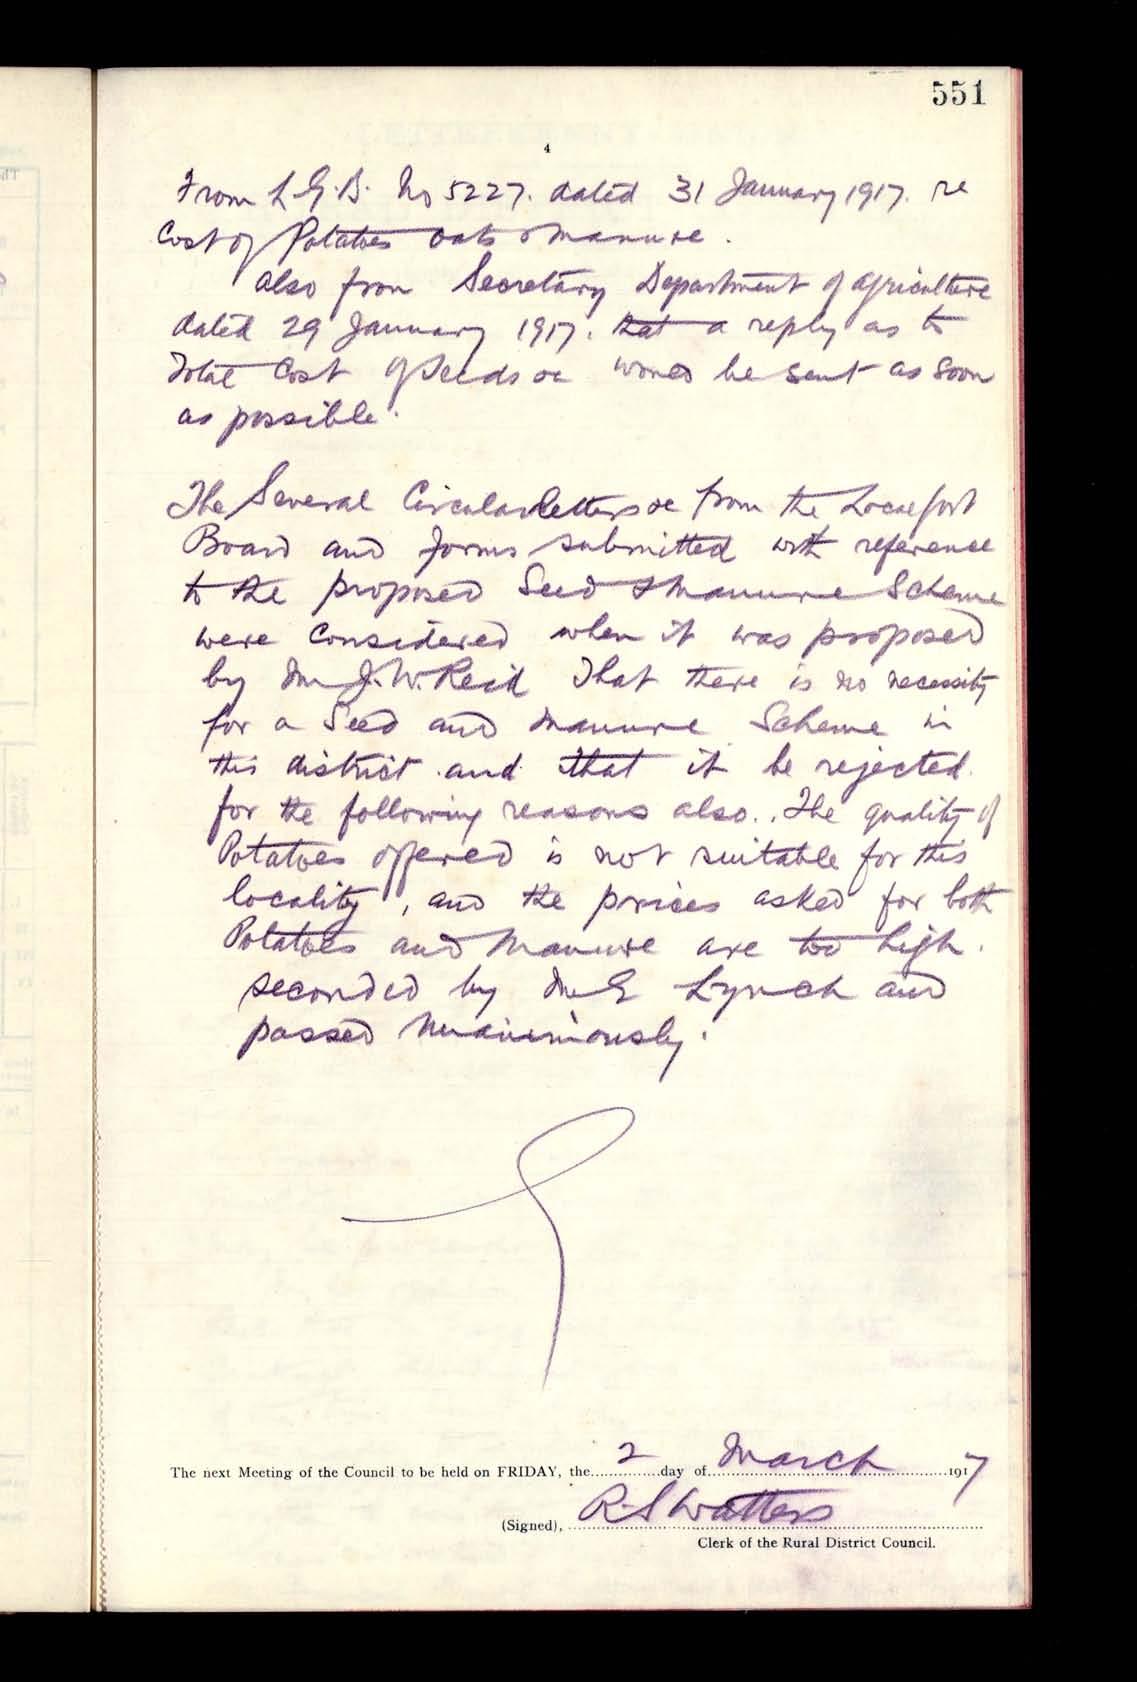 551
4
From L.G.B. No 5227. dated 31 January 1917. re
Cost of Potatoes oats & manure.
also from Secretary Department of agriculture
dated 29 January 1917. that a reply as to
Total Cost of Seeds &c would be sent as soon
as possible.
The Several Circular letters &c from the Local Govt
Board and forms submitted with reference
to the proposed Seed & Manure Scheme
were considered when it was proposed
by Mr J. W. Reid That there is no necessity
for a Seed and manure Scheme in
this district and that it be rejected
for the following reasons also.. The quality of
Potatoes offered is not suitable for this
locality, and the prices asked for both
Potatoes and Manure are too high.
seconded by Mr E Lynch and
passed unanimously.
The next Meeting of the Council to be held on FRIDAY, the 2 day of March 1917
(Signed), R. S Watters
Clerk of the Rural District Council.